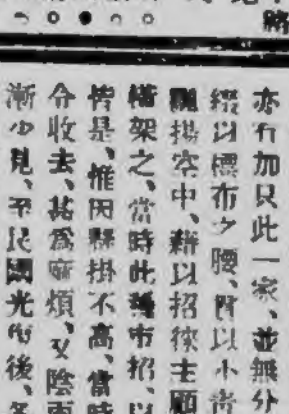 亦有加只此一家、並無分
綴以標布之腰、以小
飄揚空中、藉以招徠主顧
架之、當時此種市招、以
皆是、惟因懸掛不高、當時
分收去、甚為麻煩、又陰雨
漸少見、至民國光復後、各